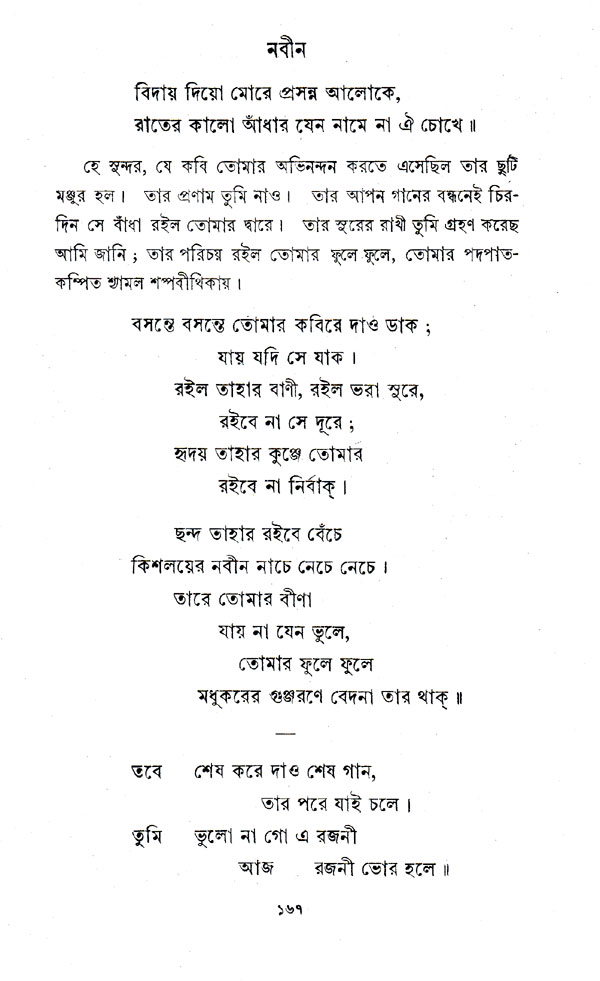 নবীন
বিদায় দিয়ো মোরে প্রসন্ন আলোকে,
রাতের কালো আঁধার যেন নামে না ঐ চোখে॥
হে সুন্দর, যে কবি তোমার অভিনন্দন করতে এসেছিল তার ছুটি
মঞ্জুর হল। তার প্রণাম তুমি নাও। তার আপন গানের বন্ধনেই চির-
দিন সে বাঁধা রইল তোমার দ্বারে। তার সুরের রাখী তুমি গ্রহণ করেছ
আমি জানি; তার পরিচয় রইল তোমার ফুলে ফুলে, তোমার পদপাত-
কম্পিত শ্যামল শষ্পবীথিকায়।
বসন্তে বসন্তে তোমার কবিরে দাও ডাক;
যায় যদি সে যাক।
রইল তাহার বাণী, রইল ভরা সুরে,
রইবে না সে দূরে;
হৃদয় তাহার কুঞ্জে তোমার
রইবে না নির্বাক্।
ছন্দ তাহার রইবে বেঁচে
কিশলয়ের নবীন নাচে নেচে নেচে।
তারে তোমার বীণা
যায় না যেন ভুলে,
তোমার ফুলে ফুলে
মধুকরের গুঞ্জরণে বেদনা তার থাক্॥
তবে শেষ করে দাও শেষ গান,
তার পরে যাই চলে।
তুমি ভুলো না গো এ রজনী
আজ রজনী ভোর হলে॥
১৬৭